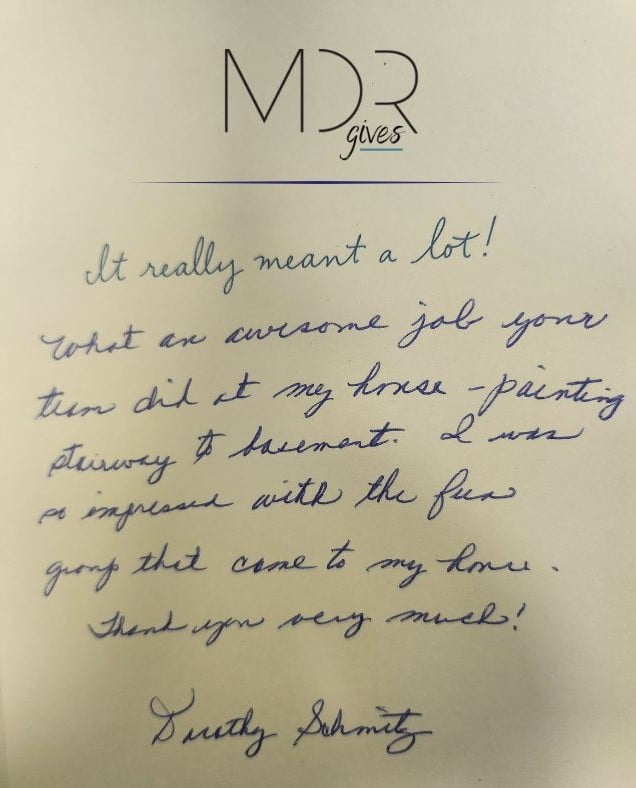 MDR
gives
It really meant a lot!
What an awesome job your
team did at my house - painting
stairway to basement. I was
so impressed with the fun
group that came to my house.
Thank you very much!
Dorothy Schmitz